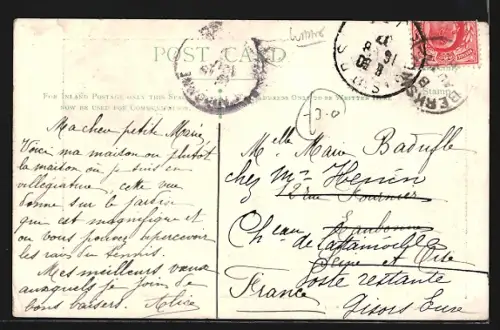 POST CARD
FOR INLAND POSTAGE ONLY THIS SPACE
NOW BE USED FOR COMMUNICATION.
ADDRESS ONLY TO BE WRITTEN HERE
Stamp
BERKS
Ma chère petite Marie,
Voici ma maison ou plutôt
la maison où je suis en
villégiature, cette vue
donne sur le jardin
qui est magnifique et
où vous pouvez apercevoir
les raies du tennis.
Mes meilleurs vœux
auxquels je joins de
bons baisers. Alice
Melle Marie
chez Mme Henin
12 rue Fournier
Eaubonne
Chau de
Seine et Oise
poste restante
France
Gisors Eure